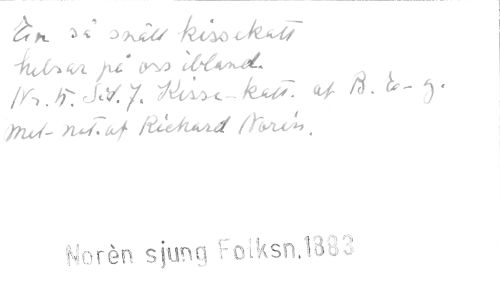 En så snäll kissekatt
helsar på oss ibland.
Nr. 5. Sid. 7. Kisse-katt. af B. E-g.
Mel-not. af Richard Norén.
Norèn sjung Folksn.1883